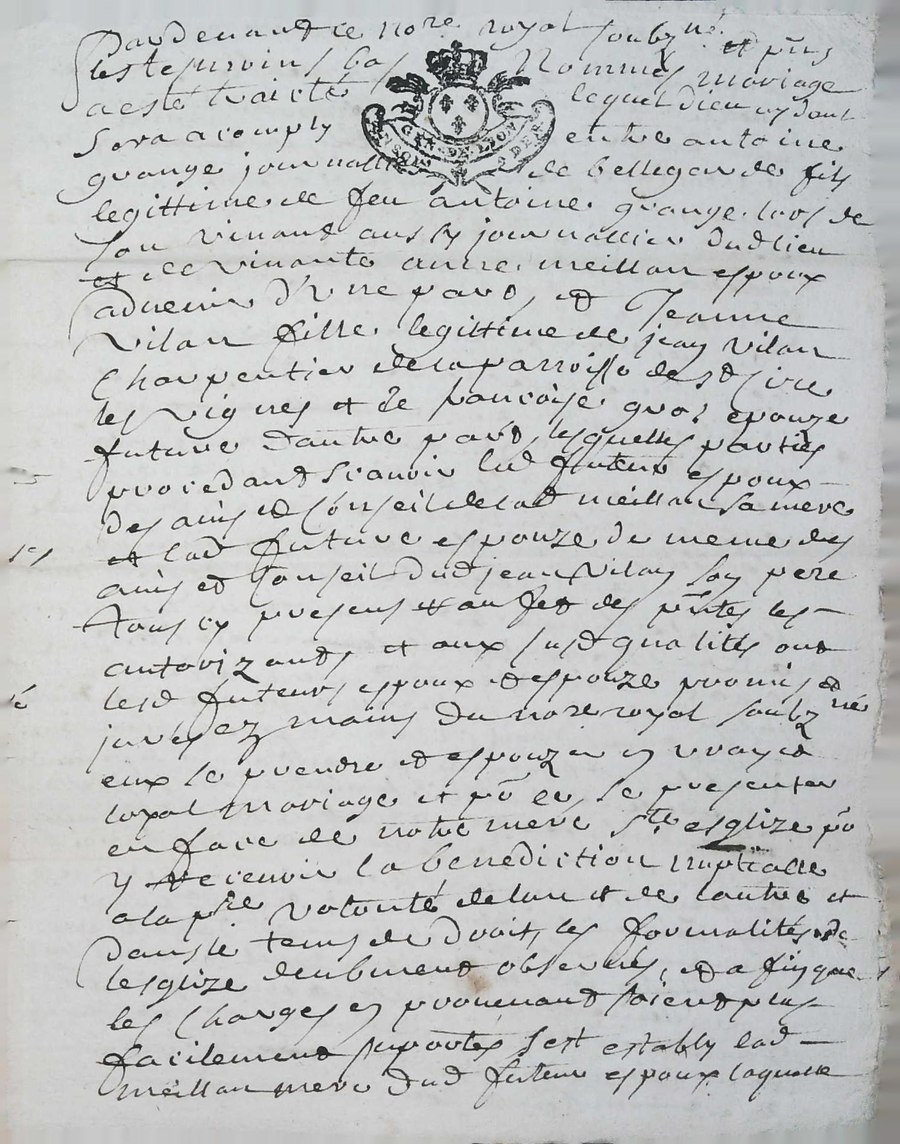 Pardevant le no.re royal soubz.né et p̃ns
les tesmoins bas Nommes mariage
a esté traicté lequel dieu aydant
sera acomply entre antoine
GEN. DE LION
grange journallier de bellegarde fils
legittime de feu antoine grange lors de
son vivant aussy journallier dudlieu
et de vivante anne meillan espoux
advenir d'une part, et Jeanne
vilan fille legittime de jean vilan
charpentier de la parroisse de st Cire
les vignes et de francoise espouze
future d'autre part, lesquelles parties
procedant scavoir led futeur espoux
des avis et Conseil de lad meillan sa mere
et lad future espouze de meme des
avis et Conseil dud jean vilan son pere
tous cy presens et au fet des p̃ntes les
autorizants et aux susd qualités ont
lesd futeurs espoux et espouze promis et
jurés ez mains du no.re royal soubz.né
eux le prendre et espouzer en vray et
loyal mariage et po.r ce, se presenter
en face de notre mere s.te esglize po.
y recevoir la benediction nuptialle
a la p.re volonté de lun et de lautre et
dans le temps de droit, les formalités de
lesglize deubment observées, et a fin que
les Charges en provenant soient plus
facilement suportés s'est estably lad
meillan mere dud futeur espoux laquelle